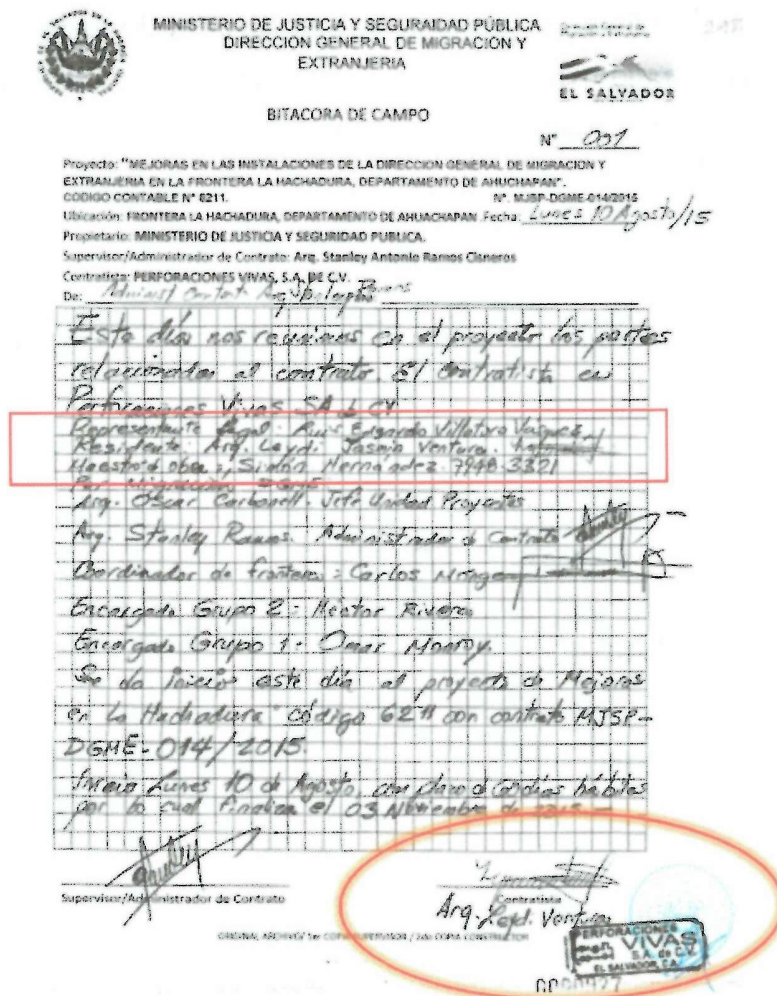 MINISTERIO DE JUSTICIA Y SEGURAIDAD PÚBLICA
DIRECCION GENERAL DE MIGRACION Y
EXTRANJERIA
EL SALVADOR
BITACORA DE CAMPO
N° 001
Proyecto: "MEJORAS EN LAS INSTALACIONES DE LA DIRECCION GENERAL DE MIGRACION Y
EXTRANJERIA EN LA FRONTERA LA HACHADURA, DEPARTAMENTO DE AHUCHAPAN".
CODIGO CONTABLE N° 6211. N°. MJSP-DGME-014/2015
Ubicación: FRONTERA LA HACHADURA, DEPARTAMENTO DE AHUACHAPAN Fecha: Lunes 10 Agosto/15
Propietario: MINISTERIO DE JUSTICIA Y SEGURIDAD PUBLICA.
Supervisor/Administrador de Contrato: Arq. Stanley Antonio Ramos Cisneros
Contratista: PERFORACIONES VIVAS, S.A. DE C.V.
De: Administ Contrat Arq. Ramos
Este día nos reunimos en el proyecto las partes
relacionadas al contrato. El Contratista
Perforaciones Vivas SA de CV
Representante Legal: Edgardo Villatoro Vasquez
Residente: Arq. Leydi Jasmin Ventura.
Maestro de obra: Simón Hernandez. 7948-3321
Por Migración DGME
Arq. Oscar Carbonell. Jefe Unidad Proyectos
Arq. Stanley Ramos. Administrador de Contrato
Coordinador de frontera: Carlos
Encargado Grupo 2: Nestor Rivera
Encargado Grupo 1: Omar Monroy.
Se da inicio este día al proyecto de Mejoras
en La Hachadura código 6211 con contrato MJSP-
DGME-014/2015.
Lunes 10 de Agosto, con plazo de días hábiles
por lo cual finaliza el 03 Noviembre de 2015
Supervisor/Administrador de Contrato
Contratista
Arq. Leydi Ventura
ORIGINAL ARCHIVO/ 1er COPIA SUPERVISOR / 2da COPIA CONSTRUCTOR
PERFORACIONES
VIVAS
S.A. de C.V.
EL SALVADOR, C.A.